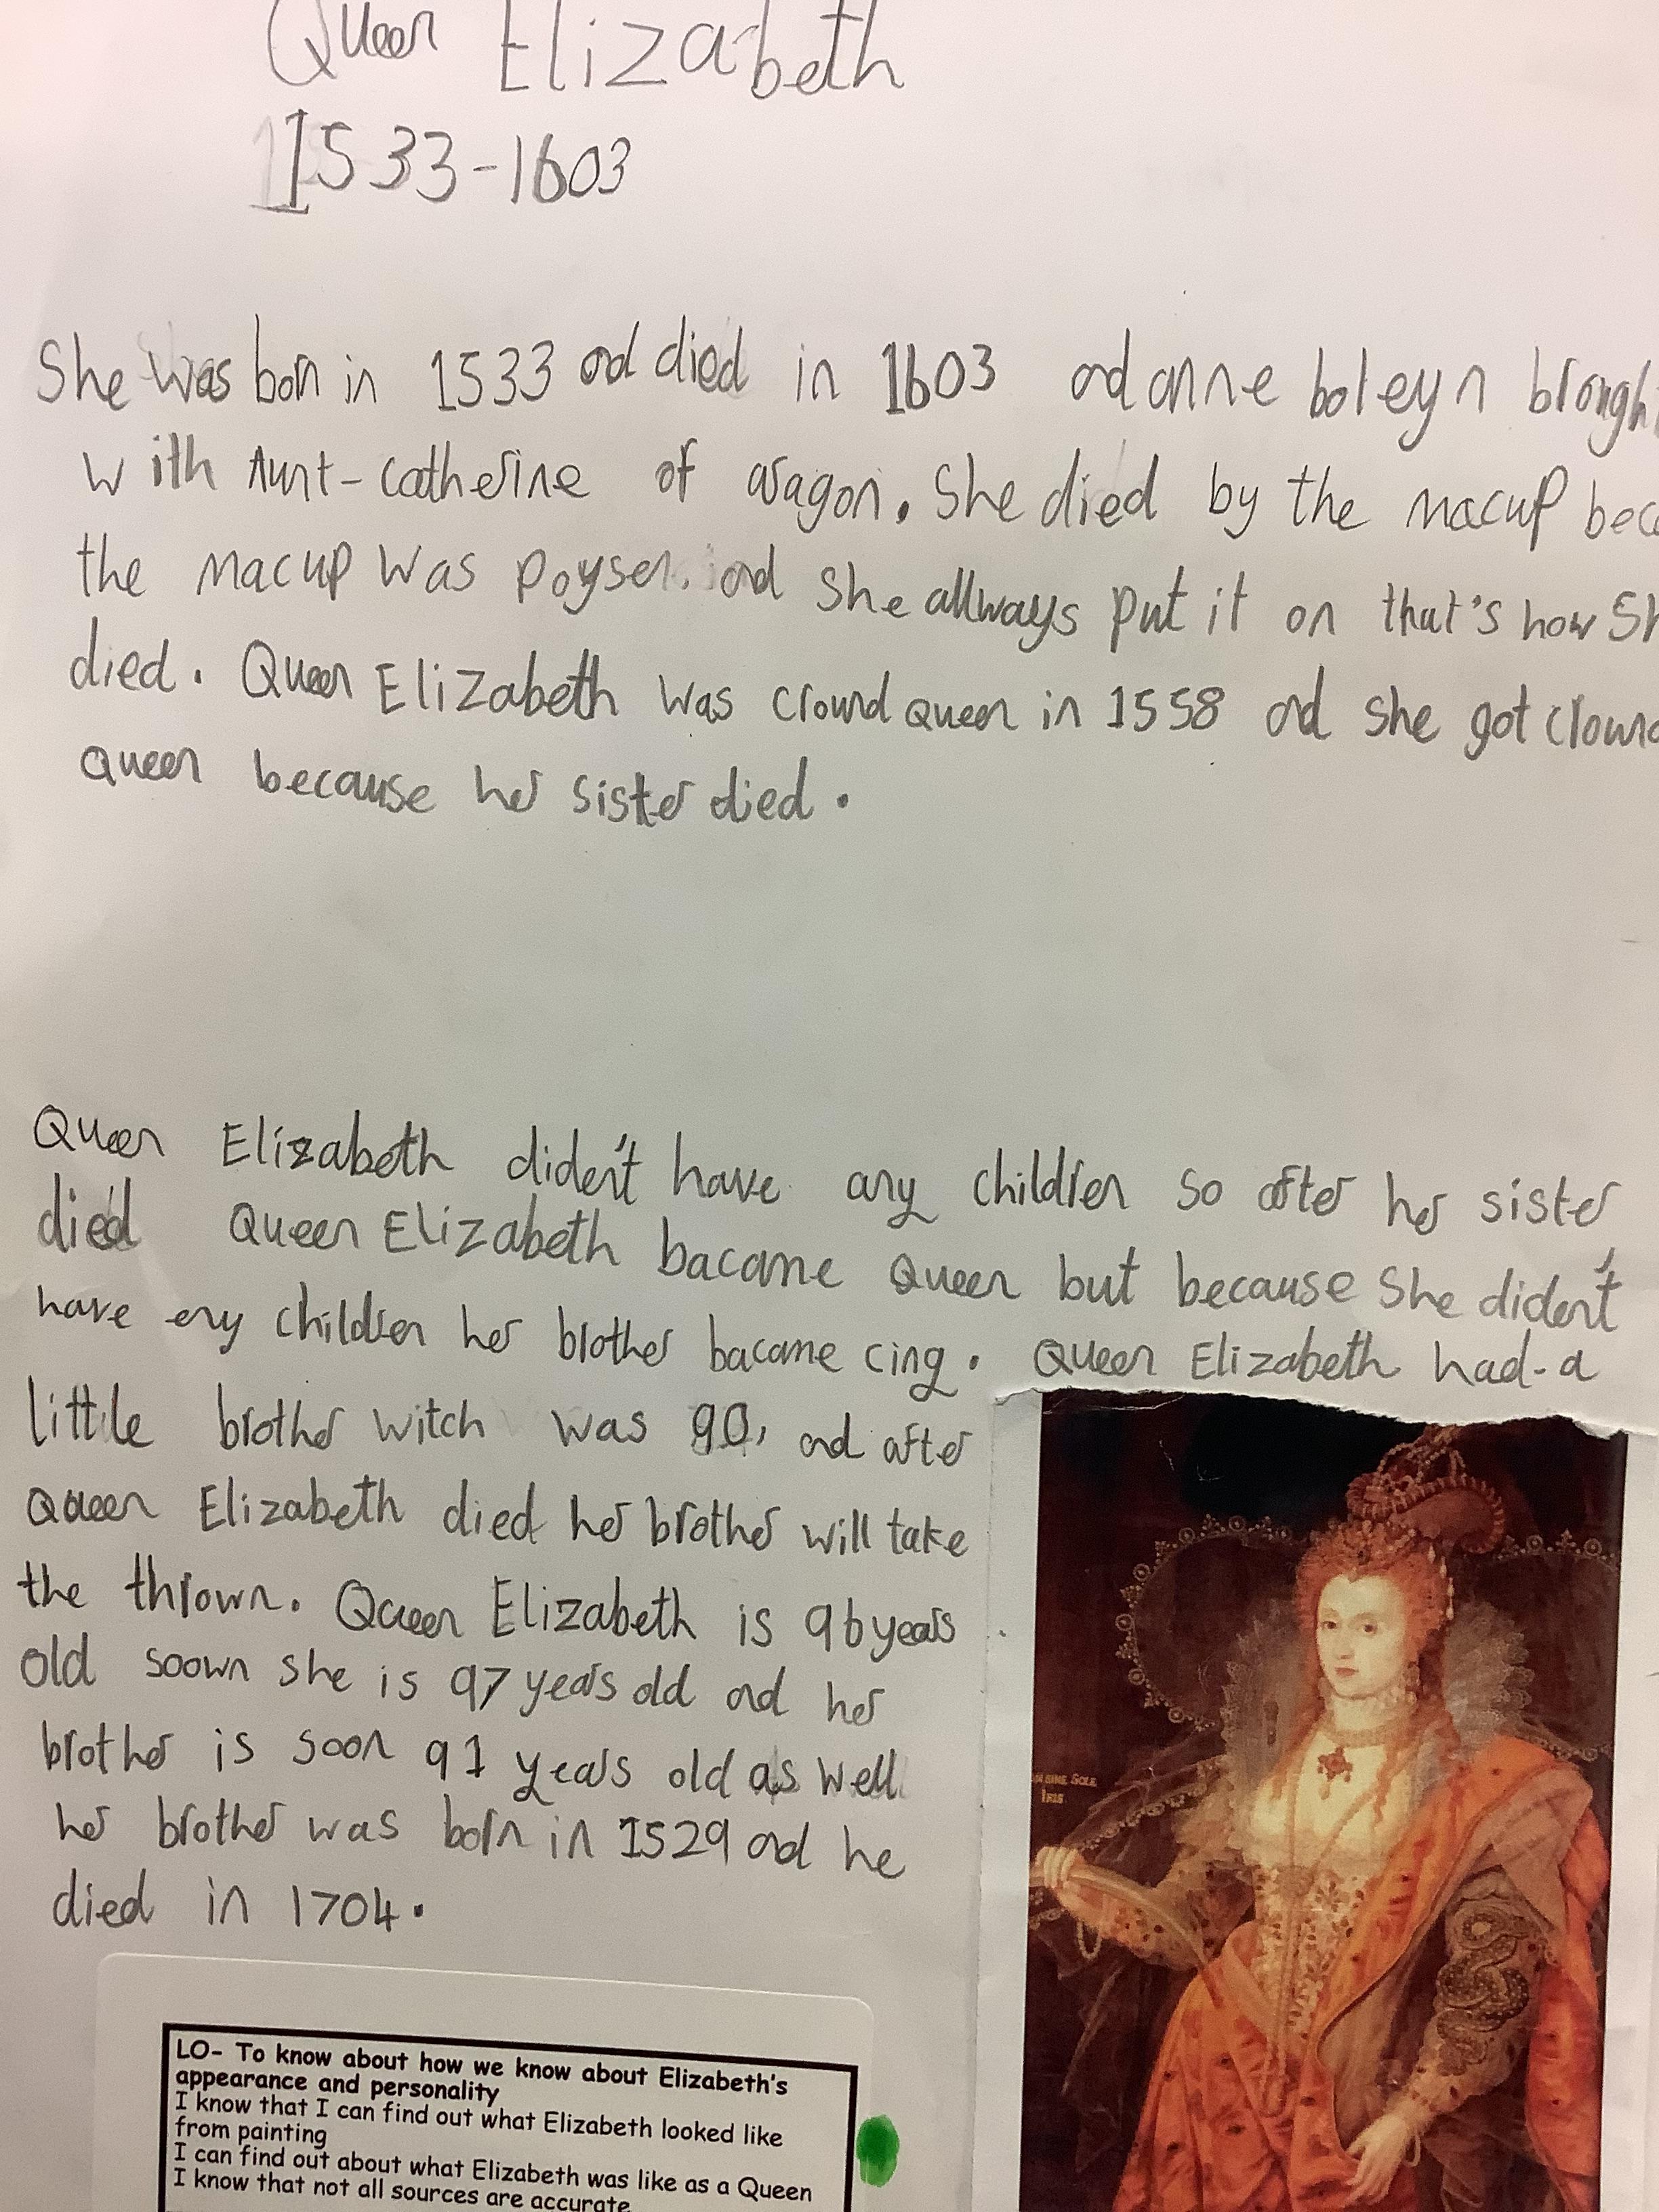 Queen Elizabeth
1533-1603
She was born in 1533 and died in 1603 and anne boleyn brough
with Aunt-catherine of aragon. She died by the macup bec
the macup was poysen. and she allways put it on that's how Sh
died. Queen Elizabeth was cround queen in 1558 and she got cround
queen because her sister died.
Queen Elizabeth diden't have any children so after her sister
died Queen Elizabeth bacame Queen but because she diden't
have eny children her brother bacame cing. Queen Elizabeth had-a
little brother witch was 90, and after
Queen Elizabeth died her brother will take
the thrown. Queen Elizabeth is 96 years
old soown she is 97 years old and her
brother is soon 91 years old as well
her brother was born in 1529 and he
died in 1704.
SINE SOLE
IRIS
LO- To know about how we know about Elizabeth's
appearance and personality
I know that I can find out what Elizabeth looked like
from painting
I can find out about what Elizabeth was like as a Queen
I know that not all sources are accurate